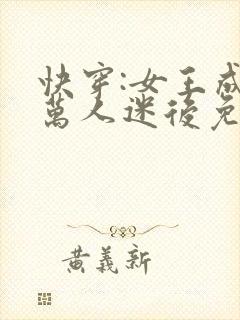 快穿:女王成
萬人迷後免
黃義新